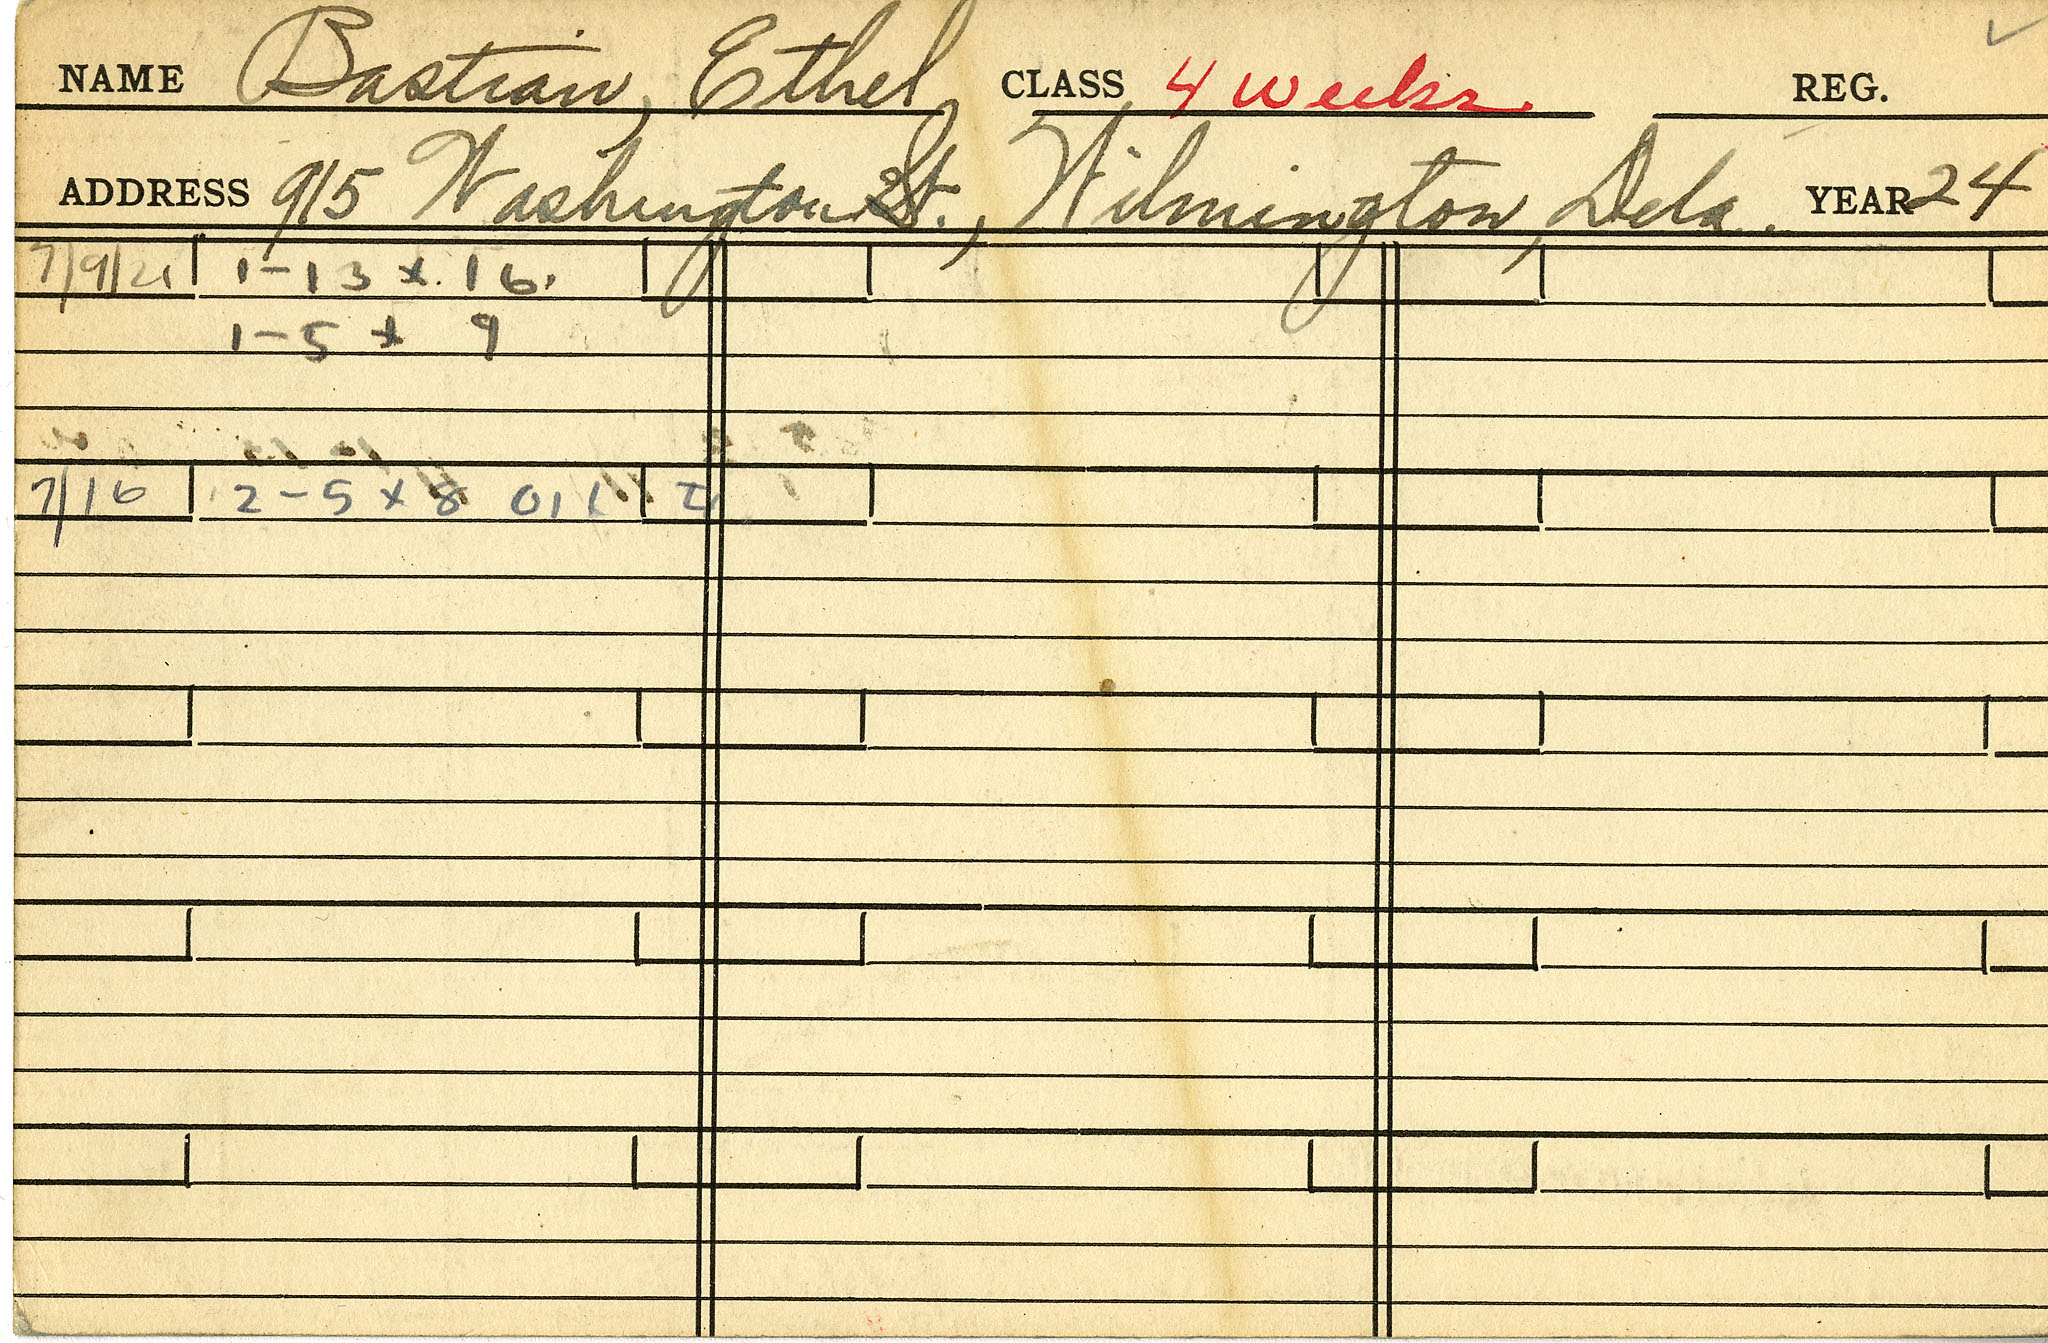 NAME Bastian, Ethel CLASS 4 weeks. REG.
ADDRESS 915 Washington St., Wilmington, Dela. YEAR 24
7/9/21 1-13 x. 16.
1-5 x 9
7/16 2-5 x 8 OIL